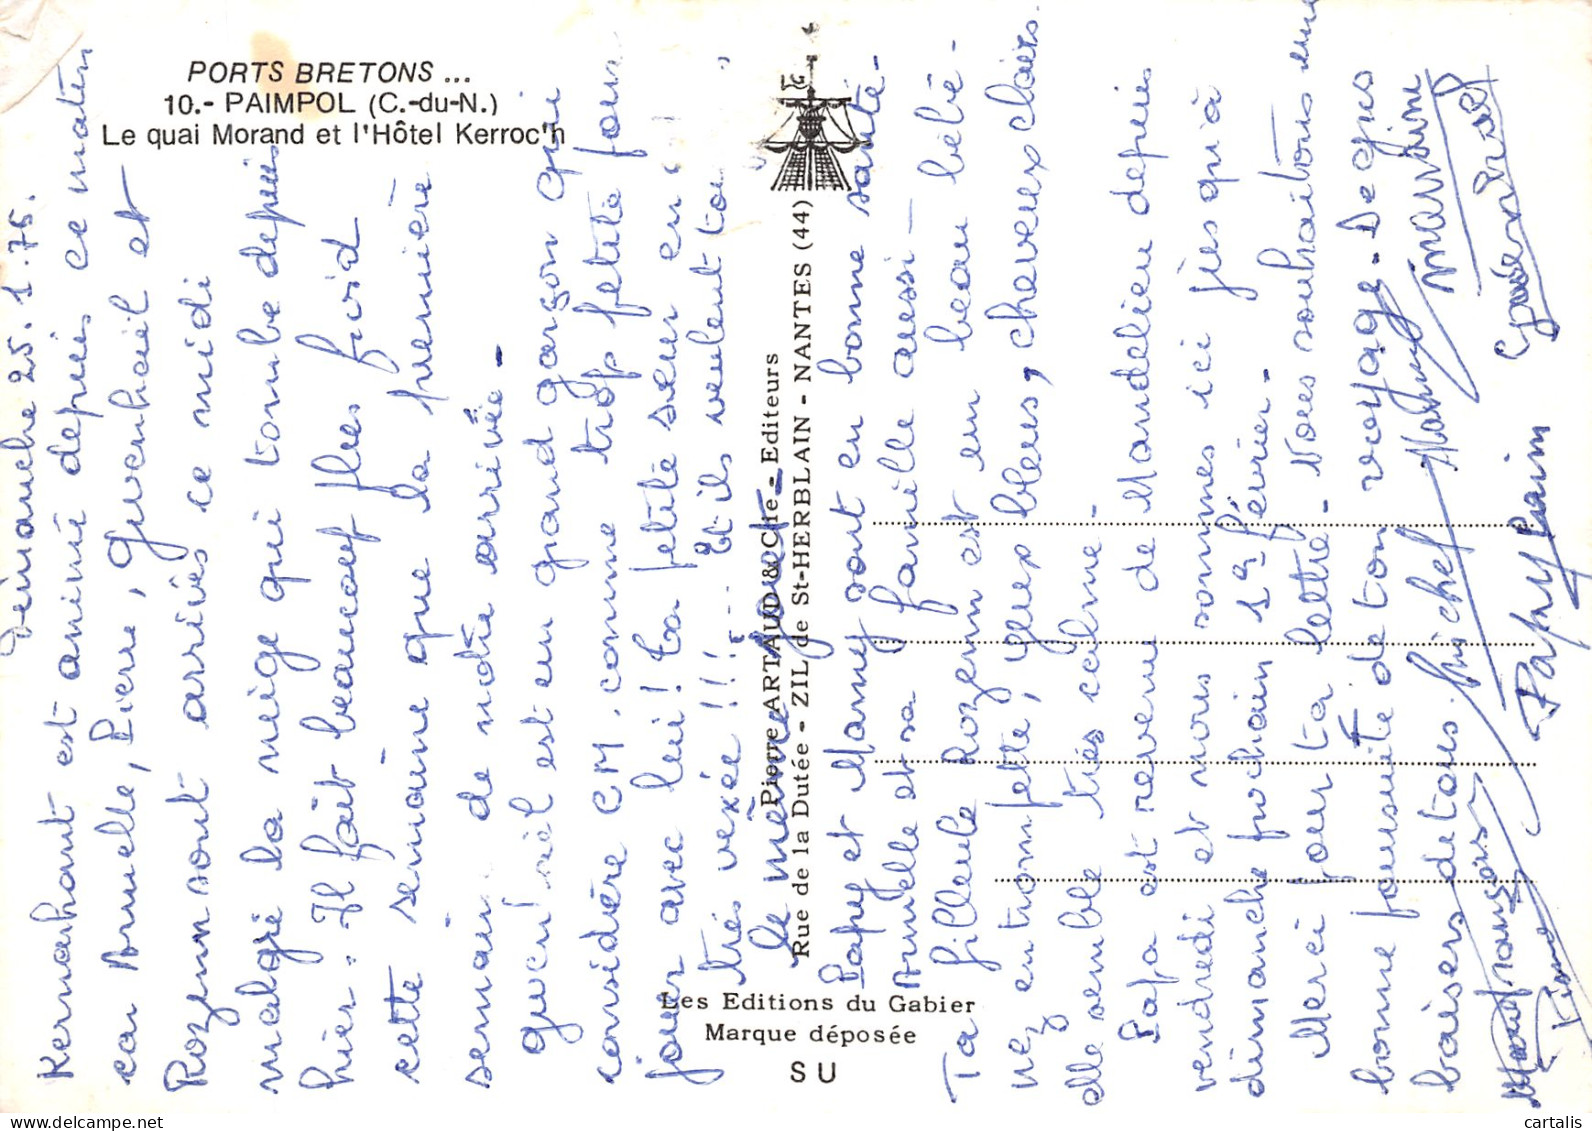 PORTS BRETONS ...
10.- PAIMPOL (C.-du-N.)
Le quai Morand et l'Hôtel Kerroc'h
Dimanche 25.1.76.
Kermarhant est animé depuis ce matin
car Armelle, Pierre, Gwenhaël et
Rozenn sont arrivés ce midi
malgré la neige qui tombe depuis
hier. Il fait beaucoup plus froid
cette semaine que la première
semaine de notre arrivée -
Gwen'haël est un grand garçon qui
considère CM. comme trop petite pour
jouer avec lui! La petite sœur en est
très vexée!!! ... Et ils veulent tous
le même jouet -
Papy et Mamy sont en bonne santé -
Armelle et sa famille aussi -
Ta filleule Rozenn est un beau bébé -
nez en trompette, yeux bleus, cheveux clairs.
elle semble très calme -
Papa est revenu de Mandelieu depuis
vendredi et nous sommes ici jusqu'à
dimanche prochain 1er février -
Merci pour ta lettre - Nous souhaitons une
bonne poursuite de ton voyage - De gros
baisers de tous. Michel Mamy marraine
Papy parrain
Pierre
Pierre ARTAUD & Cie - Editeurs
Rue de la Dutée - ZIL de St-HERBLAIN - NANTES (44)
Les Editions du Gabier
Marque déposée
S U
cartalis